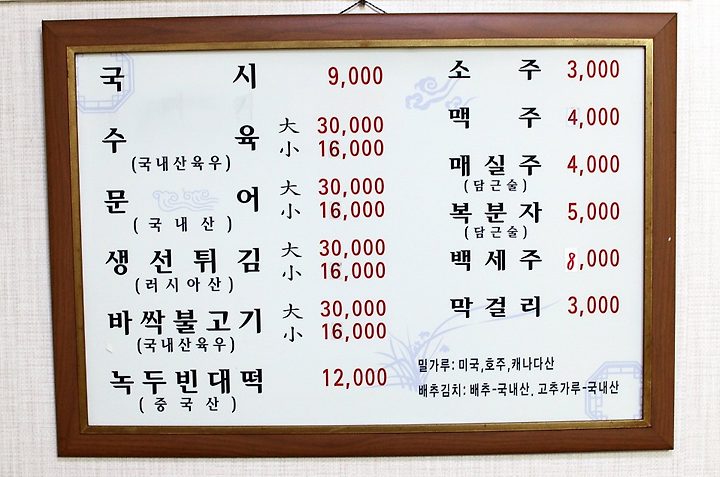 국시 9,000
수육 大 30,000
小 16,000
(국내산육우)
문어 大 30,000
小 16,000
(국내산)
생선튀김 大 30,000
小 16,000
(러시아산)
바싹불고기 大 30,000
小 16,000
(국내산육우)
녹두빈대떡 12,000
(중국산)
소주 3,000
맥주 4,000
매실주 4,000
(담근술)
복분자 5,000
(담근술)
백세주 8,000
막걸리 3,000
밀가루: 미국,호주,캐나다산
배추김치: 배추-국내산, 고추가루-국내산